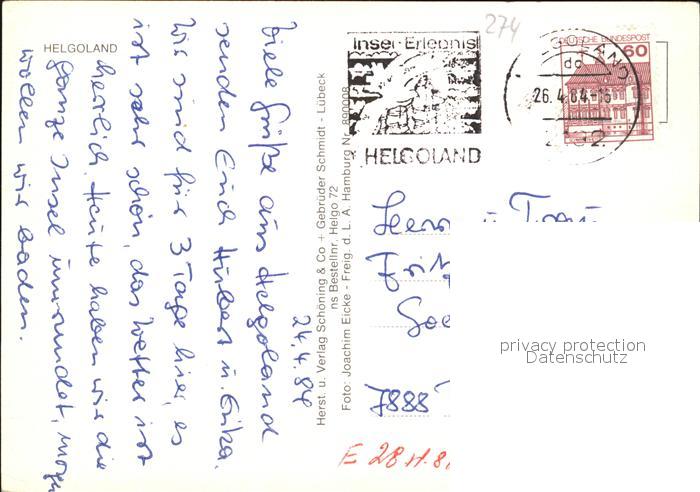 HELGOLAND
24.4.84
Viele Grüße aus Helgoland
senden Euch Hubert u. Erika.
Wir sind für 3 Tage hier, es
ist sehr schön, das Wetter ist
herrlich. Heute haben wir die
ganze Insel umrundet, morgen
wollen wir baden.
Herst. u. Verlag Schöning & Co + Gebrüder Schmidt - Lübeck
ns Bestellnr. Helgo 72
Foto: Joachim Eicke - Freig. d. L. A. Hamburg Nr. 890008
Insel-Erlebnis
HELGOLAND
274
DEUTSCHE BUNDESPOST
60
26.4.84-16
2192
Herrn u. Frau
Fritz
7888
E 28.4.8
privacy protection
Datenschutz